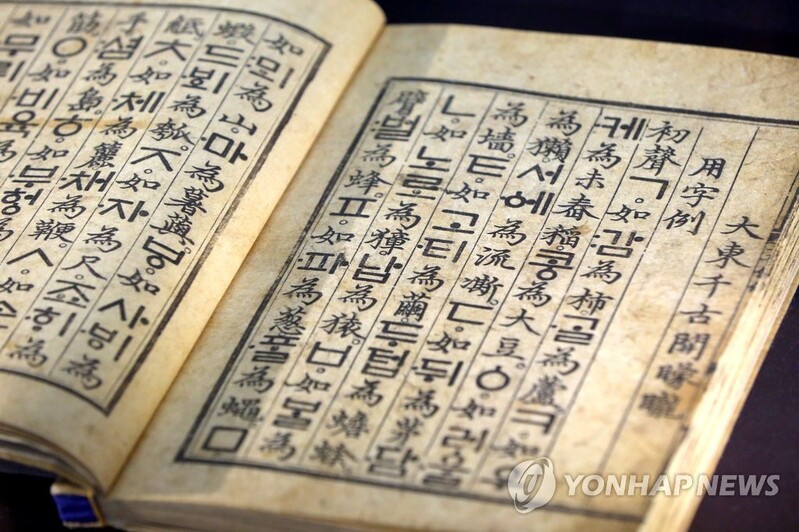 大東千古開朦朧
用字例
初聲ㄱ。如감為柿。ᄀᆞᆯ為蘆。ㅋ。如우
케為未舂稻。콩為大豆。ㆁ。如러울
為獺。서에為流凘。ㄷ。如뒤為茅。담
為墻。ㅌ。如고티為繭。두텁為蟾蜍。
ㄴ。如노로為獐。납為猿。ㅂ。如ᄇᆞᆯ為
臂。벌為蜂。ㅍ。如파為葱。ᄑᆞᆯ為蠅。ㅁ
如뫼為山。마為薯藇。ㅸ。如사ᄫᅵ為
蝦。드ᄫᅴ為瓠。ㅈ。如자為尺。죠ᄒᆡ為
紙。ㅊ。如체為籭。채為鞭。ㅅ。如손
手。셤為島。ㅎ。如부헝
筋。ㅇ。如비육
如무뤼
YONHAPNEWS